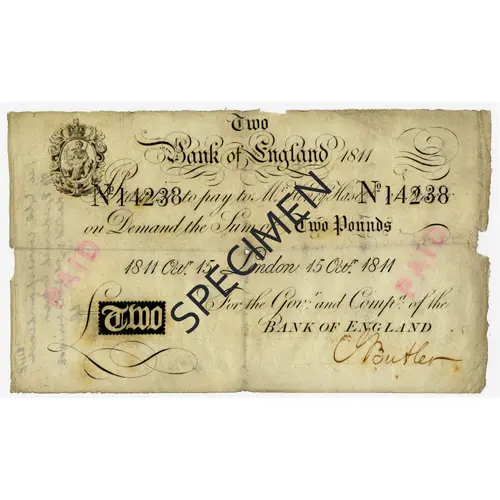 Two
Bank of England 1811
Nº 14238 to pay to Mr. Nº 14238
on Demand the Sum Two Pounds
1811 Octr. 15 London 15 Octr. 1811
£ Two For the Govr. and Compa. of the
BANK OF ENGLAND
C Butler
PAID
PAID
SPECIMEN